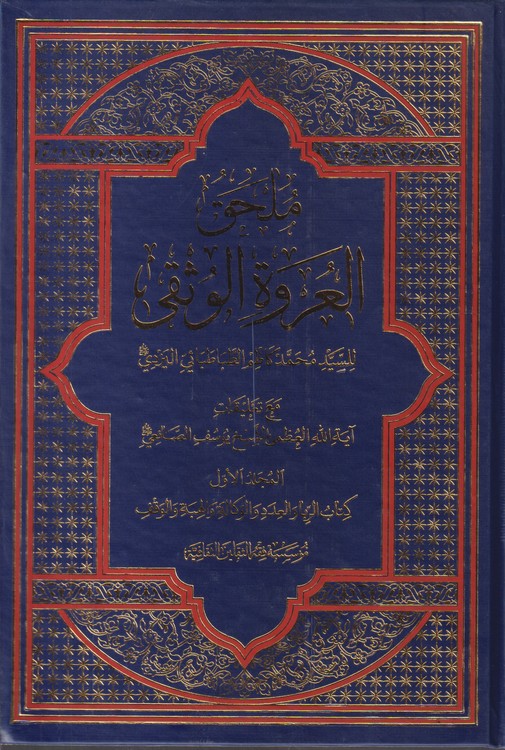 مُلحَق
العُروَةِ الوُثْقى
لِلسَّيِّد مُحَمَّد كاظِم الطَّباطَبائي اليَزدي
مَعَ تَعليقات
آيَة الله العُظمى الشَّيخ يُوسُف الصَّانِعي
المُجَلَّد الأَوَّل
كِتاب الرِّبا والعِدَد والوَكالة والهِبَة والوَقف
مُؤَسَّسة فِقه الثَّقَلَين الثَّقافيَّة